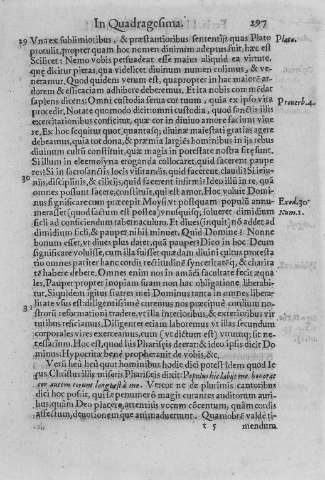 In Quadragesima. 297
29 Vna ex sublimioribus, & præstantioribus sententijs quas Plato Plato.
protulit, propter quam hoc nomen diuinum adeptus fuit, hæc est
Scilicet: Nemo vobis persuadeat esse maius aliquid ea virtute,
quæ dicitur pietas, qua videlicet diuinum numen colimus, & ve-
neramur. Quod quidem verum est, quapropter in hac
dorem & efficaciam adhibere debemus. Et ita nobis com mẽdat
sapiens dicens: Omni custodia serua cor tuum, quia ex ipso vita Prouerb. 4.
procedit. Notate quomodo dicit: omni custodia, quod sanctis illis
exercitationibus conficitur, quæ cor in diuino amore faciunt viue
re. Ex hoc sequitur quot, quantasq; diuinæ maiestati gratias agere
debeamus, quia tot dona, & præmia largiẽs hominibus in ijs rebus
diuinum cultũ constituit, quæ magis in potestate nostra sitæ sunt.
Si illum in eleemosyna eroganda collocaret, quid facerent paupe
res? Si in sacrosanctis locis visitandis, quid facerent, claudi? Si ieiu-
30 nijs, disciplinis, & cilicijs, quid facerent infirmi? Ideo illũ in re, quã
omnes possunt facere, constituit, qui est amor. Hoc voluit Domi-
nus significare cum præcepit Moysi vt postquam populũ annu- Exod. 30
merasset (quod factum est postea) vnusquisq; solueret dimidium Num. 1.
sicli ad condiendum tabernaculum. Et diues (inquit) nõ addet ad
dimidium sicli, & pauper nihil minuet. Quid Domine? Nonne
bonum esset, vt diues plus daret, quã pauper? Dico in hoc Deum
significare voluisse, cum illa fuisset quædam diuini cultus protesta
tio omnes pariter hanc cordis rectitudinẽ syncerãtatẽq, & charita
tẽ habere debere. Omnes enim nos in amãdi facultate fecit æqua
les. Pauper propter inopiam suam non hac obligatione liberabi-
tur. Siquidem igitur fratres mei Dominus tanta in omnes libera-
litate vsus est diligentissime curemus nos præcipuè cordium no-
strorũ reformationi tradere, vt illa interioribus, & exterioribus vir
tutibus reficiamus. Diligenter etiam laboremus vt illas secundum
corporales vires exerceamus, cum (vt dictum est) vtrumq; sit ne-
cessarium. Hoc est, quod his Pharisęis deerat: & ideo ipsis dicit Do
minus: Hypocritæ benè prophetauit de vobis, &c.
Verũ heu heu quot hominibus hodie dici potest idem quod Ie
sus Christus illis miseris Pharisęis dixit: Populus hic labijs me honorat
cor autem eorum longè est à me. Vereor ne de plurimis cantoribus
dici hoc possit, qui sæpenumerò magis curantes auditorum auri-
bus, quàm Deo placere, attentius vocem cõcentum, quàm cordis
affectum, deuotionemque animaduertunt. Quamobrẽ valdè ti-
t 5 mendum